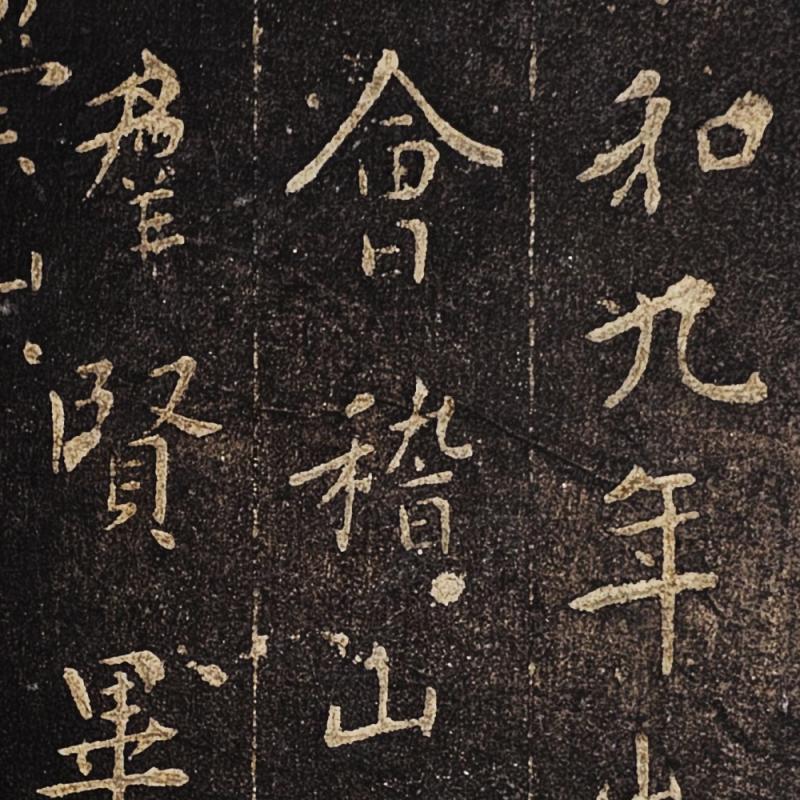 和九年
會稽山
羣賢畢